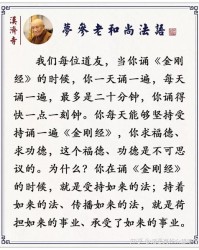 汉济寺
夢參老和尚法語
我们每位道友，当你诵《金刚
经》的时候，你一天诵一遍，每天
诵一遍，最多是二十分钟，你诵得
快一点一刻钟。你每天能够坚持受
持诵一遍《金刚经》，你求福德、
求功德，这个福德、功德是不可思
议的。为什么？你在诵《金刚经》
的时候，就是受持如来的法；持着
如来的法、传播如来的法，就是荷
担如来的事业、承受了如来的事业。